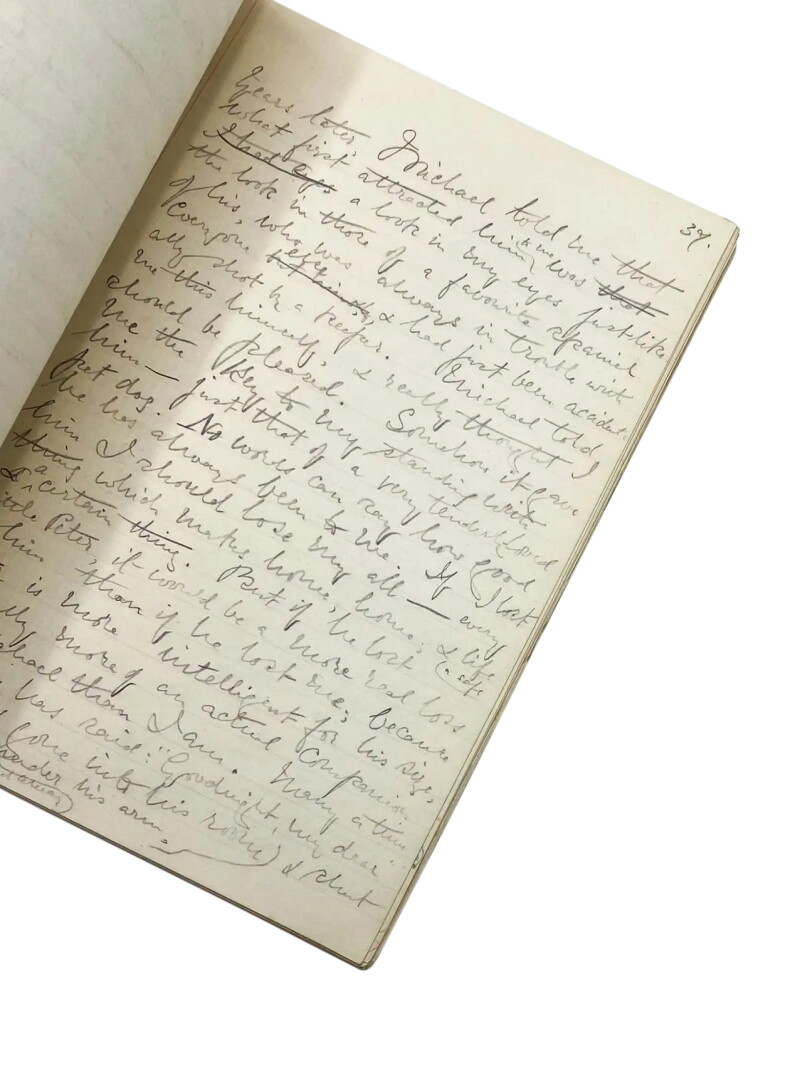 37.
Years later, Michael told me that
what first attracted him to me was that
I had eyes a look in my eyes just like
the look in those of a favourite spaniel
of his, who was always in trouble with
everyone else but himself, & had just been accident-
ally shot by a keeper. Michael told
me this himself, & really thought I
should be pleased. Somehow it gave
me the key to my standing with
him — just that of a very tenderly loved
pet dog. No words can say how good
he has always been to me. If I lost
him I should lose my all — every
thing which makes home, home; & life
a certain thing. But if he lost a safe
Peter, it would be a more real loss
him than if he lost me; because
is more intelligent for his size,
more of an actual companion
than I am. Many a time
has said: "Goodnight, my dear"
gone into his room) & shut
under his arm.